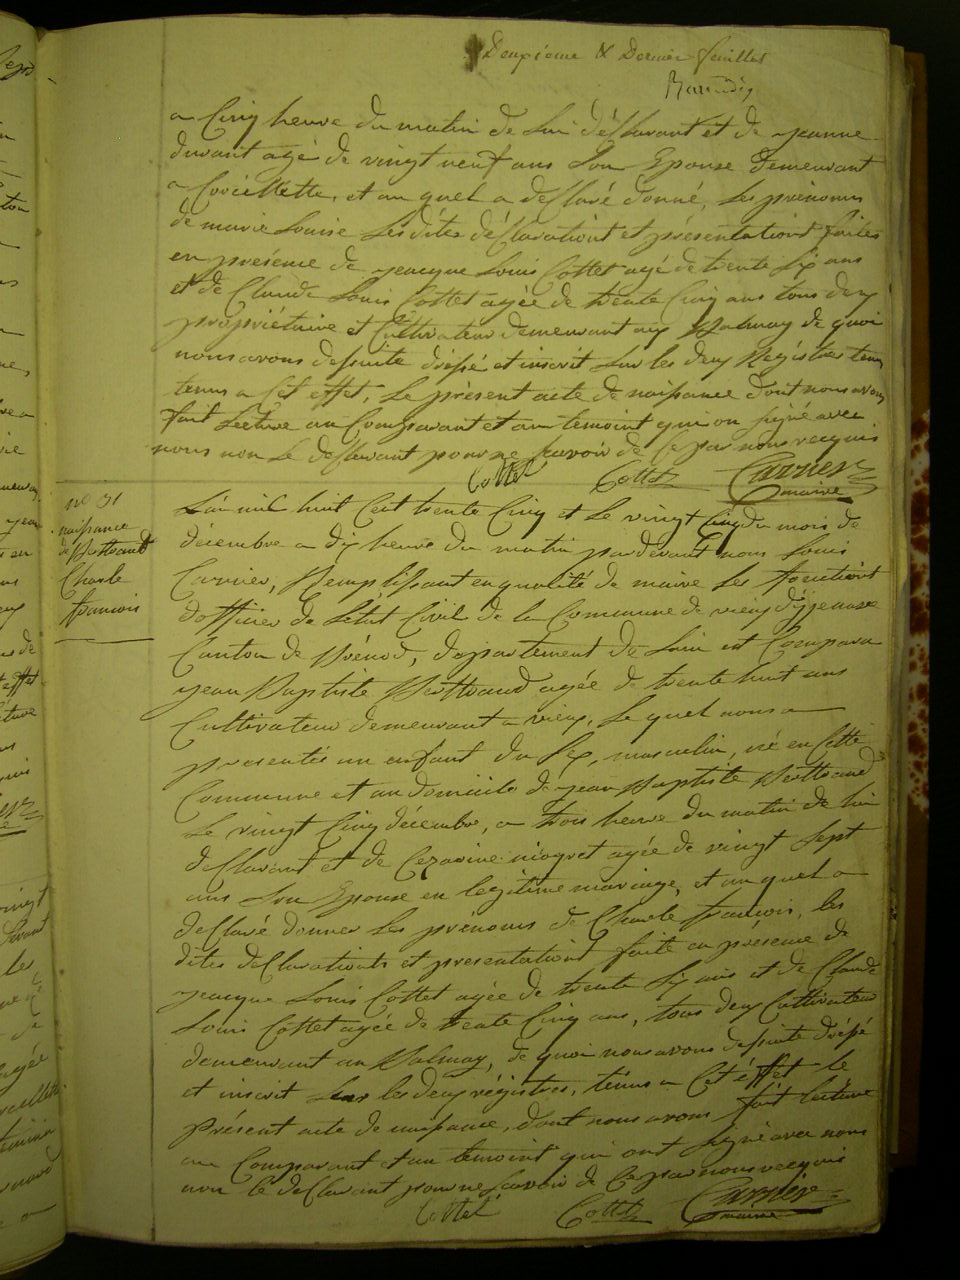 Deuxieme & Dernier feuillet
a Cinq heure du matin de lui déClarant et de jeanne
durant agé de vingt neuf ans son Epouse demeurant
a CorceIlette, et au quel a déClaré donné, les prénoms
de marie Louise Les dites déClarationt et présentationt faites
en presence de jeacque Louis Cottet agé de trente Six ans
et de Claude Louis Cottet agée de trente Cinq ans tous deux
propriétaire et Cultivateur demeurant aux Balmay de quoi
nous avons desuite dréssé et inscrit Sur les deux Régistres tenus
tenus a Cet effet, Le présent acte de naissance dont nous avons
fait Lecture au Comparant et au temoint qui on Signé avec
nous non Le déClarant pour ne Savoir de Ce par nous requis
Cottet Cottet Carrier
maire
no 31
naissance
de Berthaud
Charle
francois
L'an mil huit Cent trente Cinq et Le vingt Cinq du mois de
décembre a dix heure du matin pardevant nous Louis
Carrier, Remplissant en qualité de maire Les fonctiont
d'officier de L'etat Civil de la Commune de vieux dizenave
Canton de Brénod, département de Lain est Comparu
jean Baptiste Berthaud agée de trente huit ans
Cultivateur demeurant a vieux, Le quel nous a
presentés un enfant du Sex, masculin, né en Cette
Commune et au domicile de jean Baptiste Berthaud
Le vingt Cinq décembre, a trois heure du matin de lui
déClarant et de Cezarine niogret agée de vingt Sept
ans Son Epouse en legitime mariage, et au quel a
déClaré donner Les prénoms de Charle francois, les
dites déClarationts et presentationt faite en présence de
jeacque Louis Cottet agée de trente Six ans et de Claude
Louis Cottet agée de trente Cinq ans, tous deux Cultivateur
demeurant au Balmay, de quoi nous avons desuite dréssé
et inscrit Sur les deux régistres, ténus a Cet éffet le
Présent acte de naissance, dont nous avons fait lécture
au Comparant et au temoint qui ont Signé avec nous
non le déClarant pour ne Savoir de Ce par nous requis
Cottet Cottet Carrier
maire